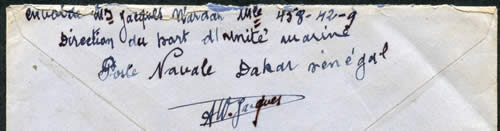 envoi de MT Jacques Wardan Mle 438-42-9
Direction du port d'unité marine
Poste Navale Dakar sénégal
AW. Jacques